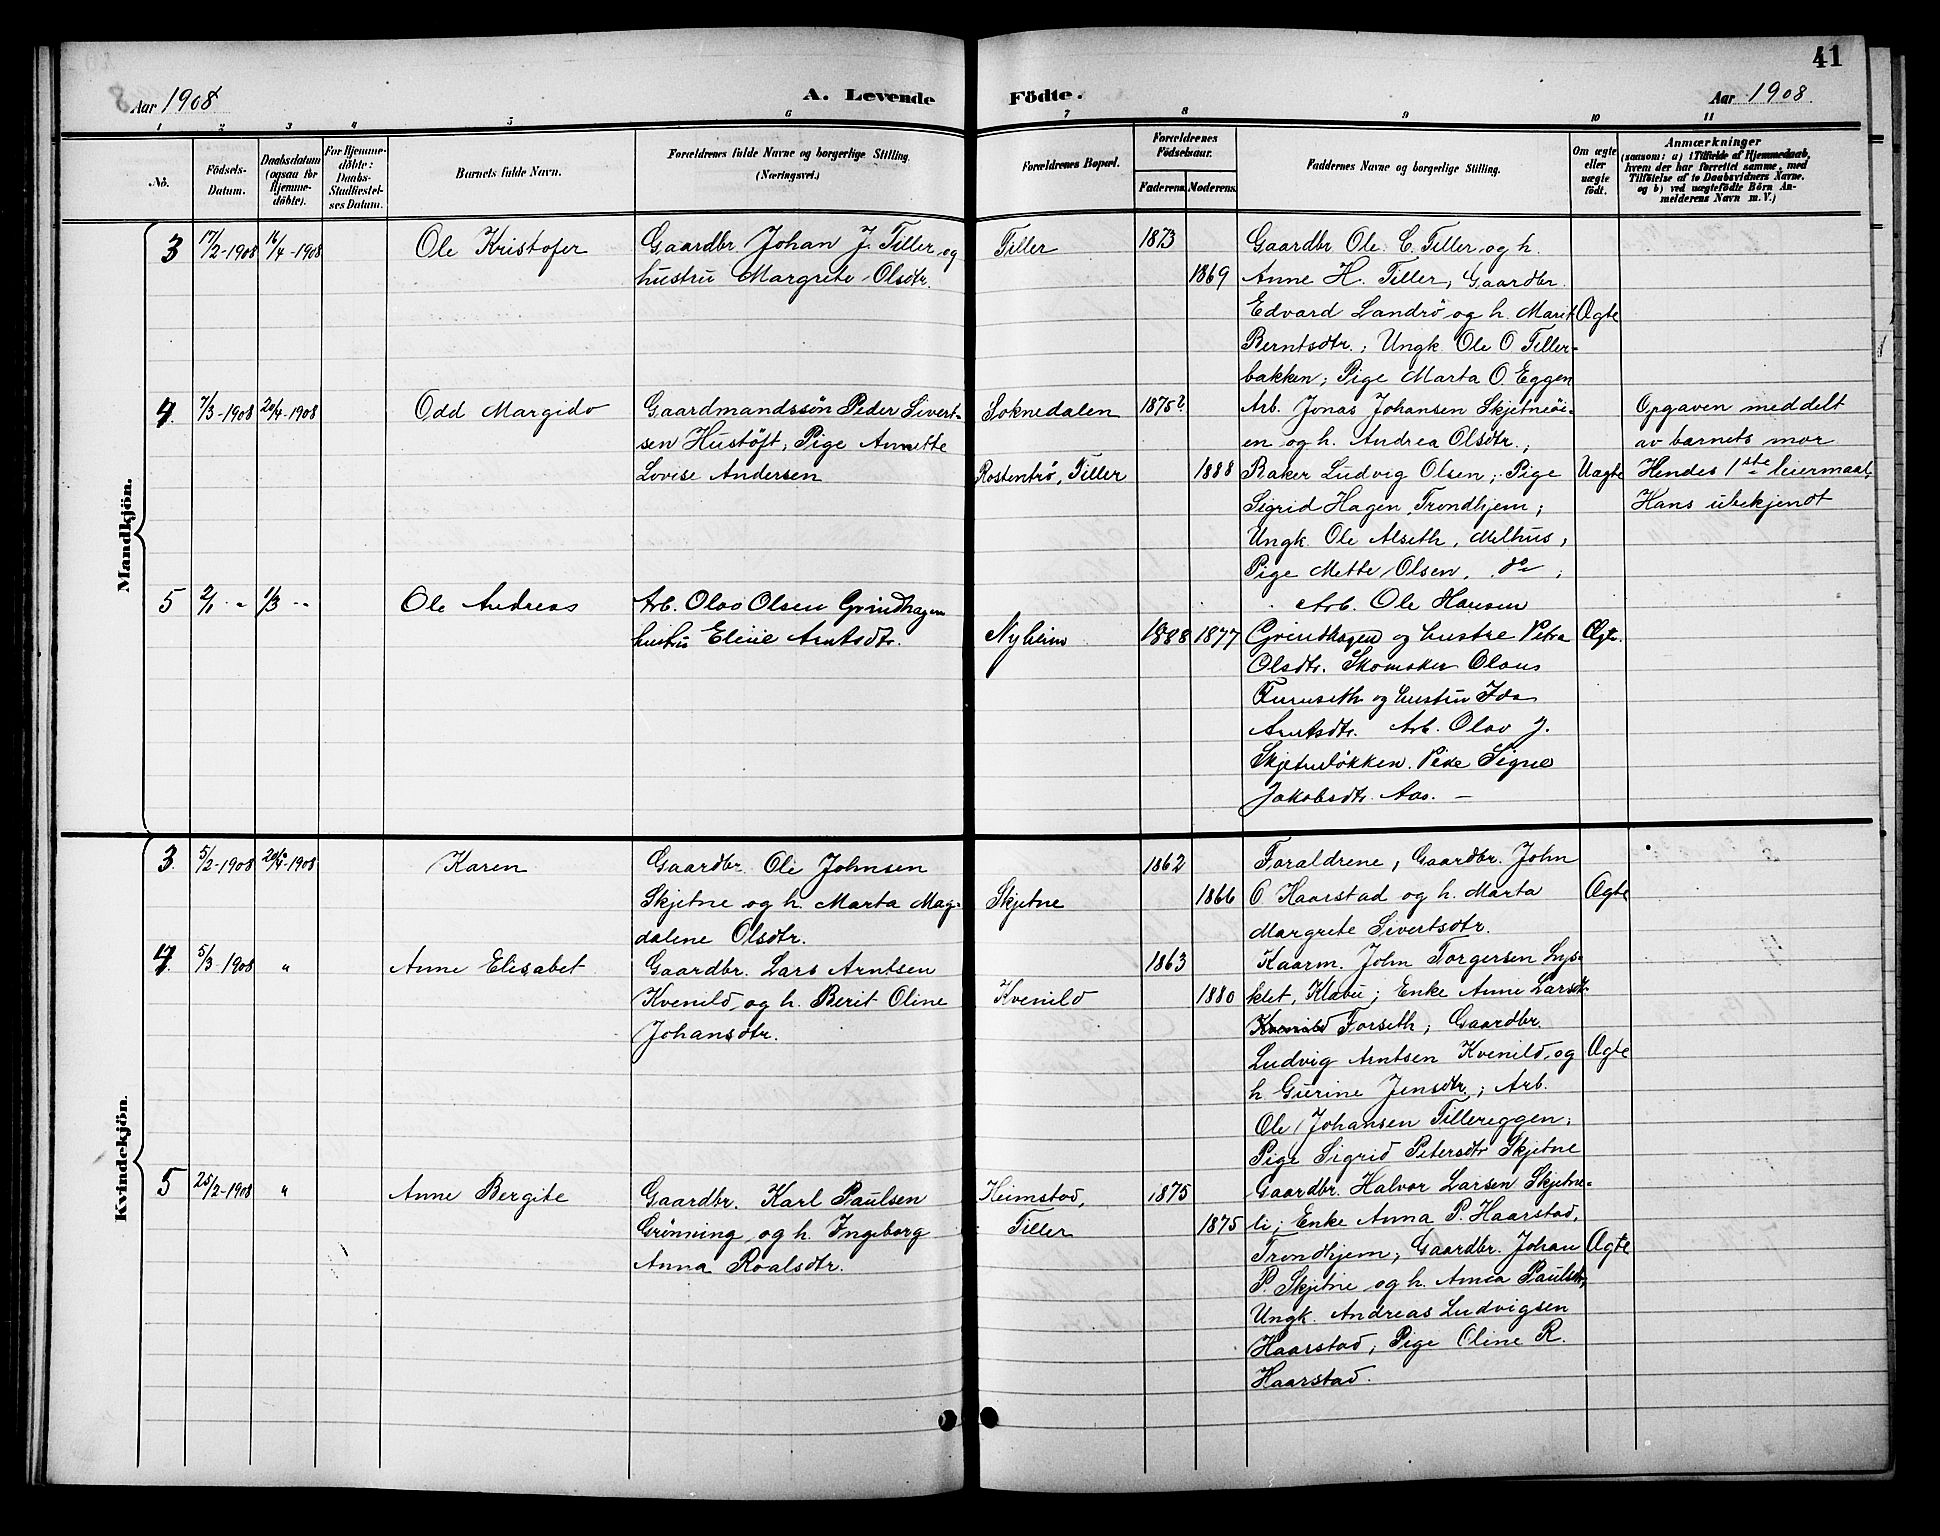 41
Aar 1908 A. Levende Födte. Aar 1908
1 2 3 4 5 6 7 8 9 10 11
No.
Födsels-
Datum.
Daabsdatum
(ogsaa for
Hjemme-
döbte).
For Hjemme-
döbte:
Daabs-
Stadfæstel-
ses Datum.
Barnets fulde Navn.
Forældrenes fulde Navne og borgerlige Stilling.
(Næringsvei.)
Forældrenes Bopæl.
Forældrenes
Födselsaar.
Faderens. Moderens.
Faddernes Navne og borgerlige Stilling.
Om ægte
eller
uægte
födt.
Anmærkninger
(saasom: a) i Tilfælde af Hjemmedaab,
hvem der har forrettet samme, med
Tilföielse af to Daabsvidners Navne.
og b) ved uægtefödte Börn An-
melderens Navn m. V.)
Mandkjön.
3 17/2-1908 16/4-1908
Ole Kristofer
Gaardbr. Johan J. Tiller, og
hustru Margrete Olsdtr.
Tiller
1873
1869
Gaardbr. Ole C. Tiller, og h.
Anne H. Tiller, Gaardbr.
Edvard Landrö og h. Marit
Berntsdtr.; Ungk. Ole O Tiller-
bakken; Pige Marta O. Eggen
Ægte
4. 7/3-1908 20/4-1908
Odd Margido
Gaardmandssön Peder Sivert-
sen Hustöft; Pige Annette
Lovise Andersen
Soknedalen
Rostentrö, Tiller
1875?
1888
Arb. Jonas Johansen Skjetneöi-
en og h. Andrea Olsdtr.;
Baker Ludvig Olsen; Pige
Sigrid Hagen, Trondhjem;
Ungk. Ole Alseth, Melhus,
Pige Mette Olsen, do;
Uægte
Opgaven meddelt
av barnets mor
Hendes 1ste leiermaal,
Hans ubekjendt
5 2/1 " " 1/3 " "
Ole Andreas
Arb. Olav Olsen Grindhagen
hustru Eline Arntsdtr.
Nyheim
1888 1877
Arb. Ole Hansen
Grindhagen og hustru Petra
Olsdtr. Skomaker Olaus
Furuseth og hustru Ida
Arntsdtr. Arb. Olav J.
Skjetneløkken. Pike Signe
Jakobsdtr. Aas. —
Ægte.
Kvindekjön.
3. 5/2-1908 20/4-1908
Karen
Gaardbr. Ole Johnsen
Skjetne og h. Marta Mag-
dalene Olsdtr.
Skjetne
1862
1866
Forældrene, Gaardbr. John
O Haarstad og h. Marta
Margrete Sivertsdtr.
Ægte
4. 5/3-1908 "
Anne Elisabet
Gaardbr. Lars Arntsen
Kvenild, og h. Berit Oline
Johansdtr.
Kvenild
1863
1880
Kaarm. John Torgersen Lys-
klet, Klæbu; Enke Anne Larsdtr.
Kvenild Forseth; Gaardbr.
Ludvig Arntsen Kvenild, og
h. Gurine Jensdtr.; Arb.
Ole Johansen Tillereggen;
Pige Sigrid Petersdtr Skjetne
Ægte
5 25/2-1908 "
Anne Bergite
Gaardbr. Karl Paulsen
Grönning, og h. Ingeborg
Anna Roalsdtr.
Heimstad,
Tiller
1875
1875
Gaardbr. Halvor Larsen Skjetne-
li; Enke Anna P. Haarstad,
Trondhjem; Gaardbr. Johan
P. Skjetne og h. Paulsdtr,
Ungk. Andreas Ludvigsen
Haarstad, Pige Oline R.
Haarstad.
Ægte